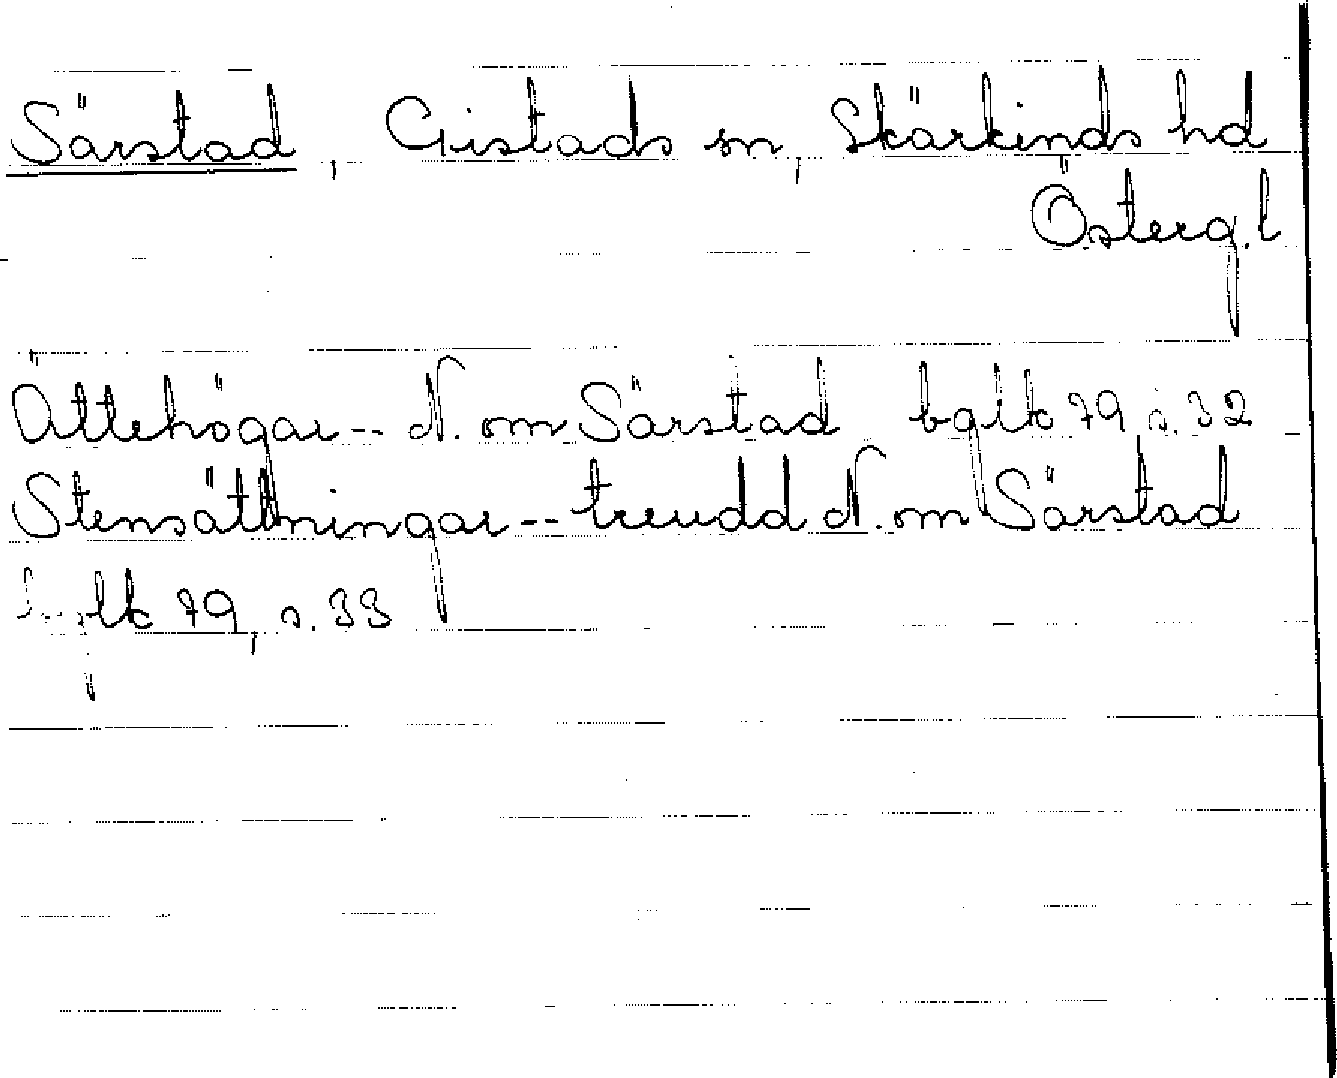 Särstad, Gistads sn, Skärkinds hd
Österg. l
Ättehögar -- N. om Särstad bglk 79 s. 32
Stensättningar -- treudd N. om Särstad
bglk 79, s. 33